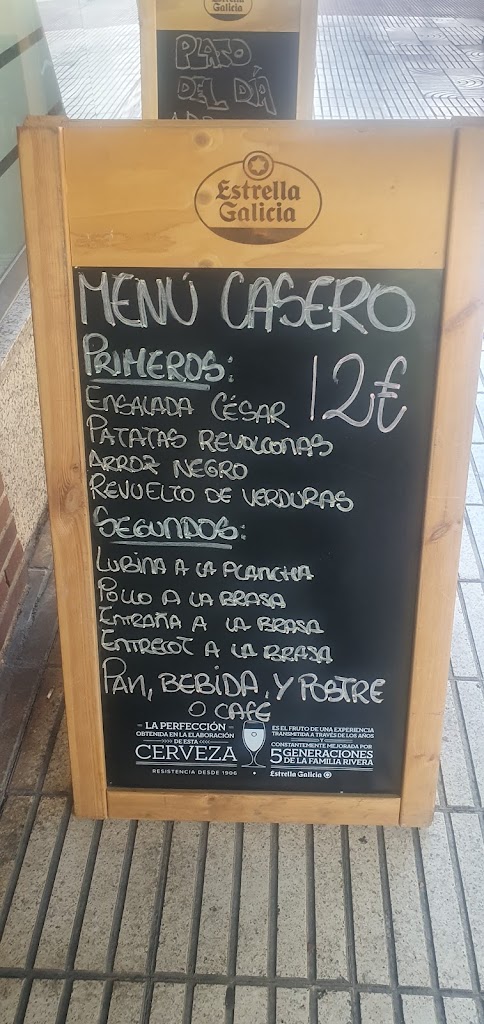 Estrella
Galicia
PLATO
DEL DÍA
Estrella
Galicia
MENÚ CASERO
PRIMEROS:
12€
ENSALADA CÉSAR
PATATAS REVOLCONAS
ARROZ NEGRO
REVUELTO DE VERDURAS
SEGUNDOS:
LUBINA A LA PLANCHA
POLLO A LA BRASA
ENTRAÑA A LA BRASA
ENTRECOT A LA BRASA
PAN, BEBIDA, Y POSTRE
O CAFE
LA PERFECCIÓN
OBTENIDA EN LA ELABORACIÓN
DE ESTA
CERVEZA
RESISTENCIA DESDE 1906
ES EL FRUTO DE UNA EXPERIENCIA
TRANSMITIDA A TRAVÉS DE LOS AÑOS
Y
CONSTANTEMENTE MEJORADA POR
5 GENERACIONES
DE LA FAMILIA RIVERA
Estrella Galicia